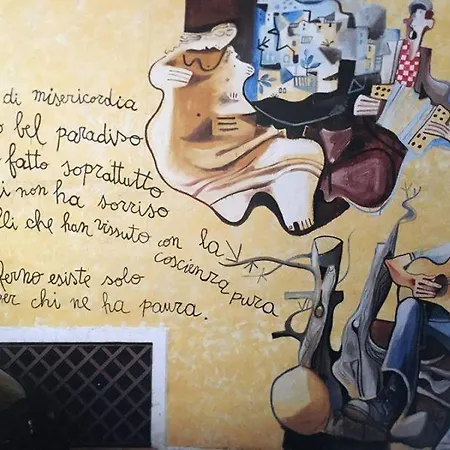 di misericordia
bel paradiso
fatto soprattutto
non ha sorriso
che han vissuto con la
coscienza pura
esiste solo
per chi ne ha paura.